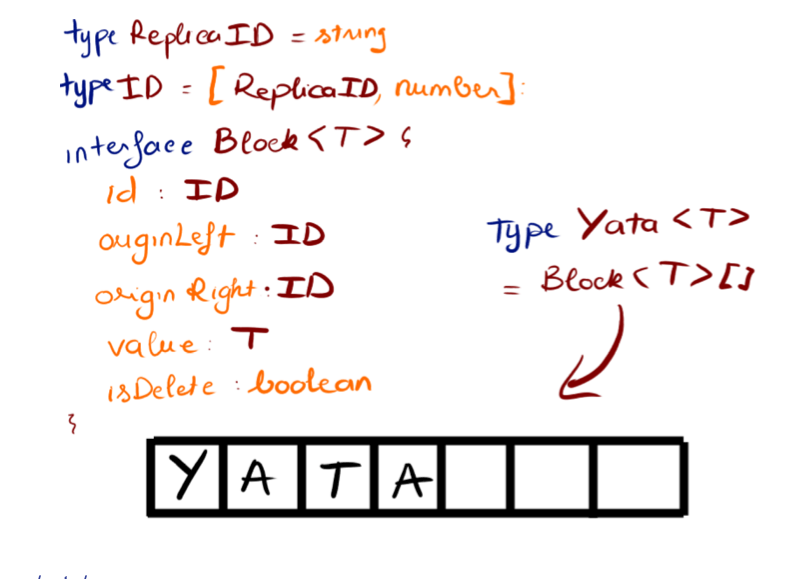 type ReplicaID = string
type ID = [ReplicaID, number];
interface Block<T> {
id : ID
originLeft : ID
originRight : ID
value : T
isDelete : boolean
}
type Yata<T>
= Block<T>[]
Y A T A